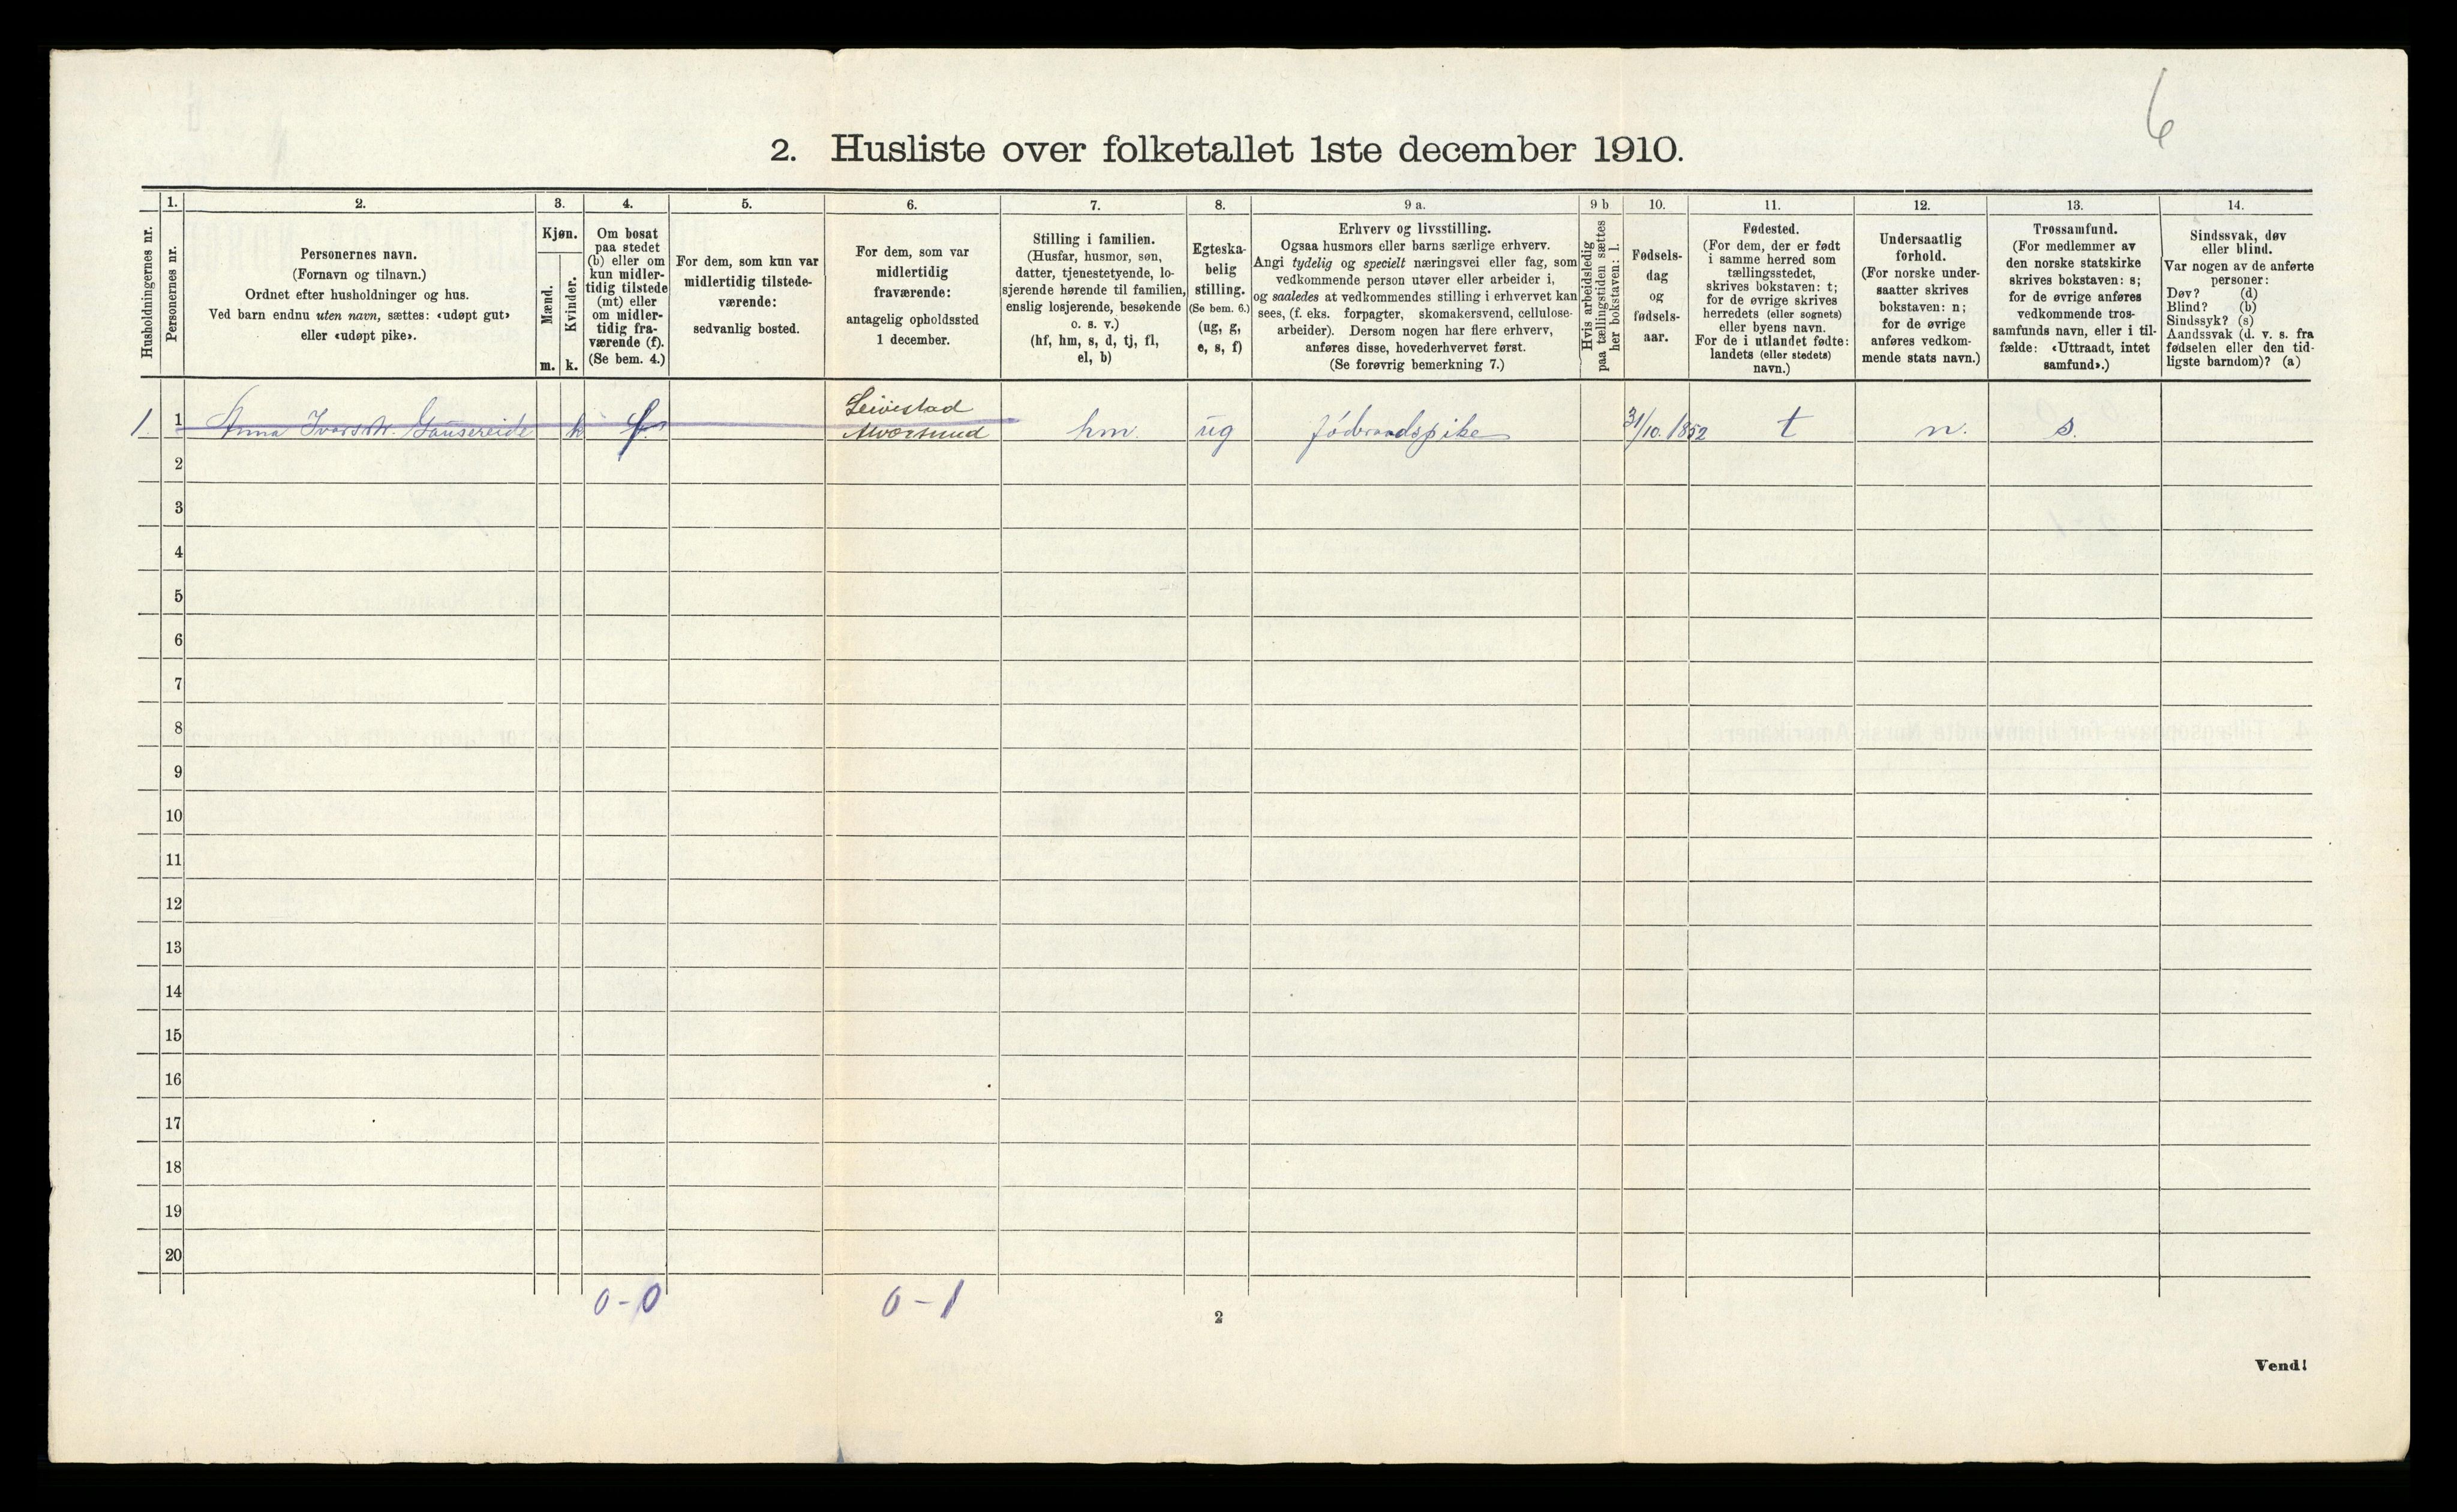 6
2. Husliste over folketallet 1ste december 1910.
Husholdningernes nr.
1.
Personernes nr.
2.
Personernes navn.
(Fornavn og tilnavn.)
Ordnet efter husholdninger og hus.
Ved barn endnu uten navn, sættes: «udøpt gut»
eller «udøpt pike».
3.
Kjøn.
Mænd.
Kvinder.
m.
k.
4.
Om bosat
paa stedet
(b) eller om
kun midler-
tidig tilstede
(mt) eller
om midler-
tidig fra-
værende (f).
(Se bem. 4.)
5.
For dem, som kun var
midlertidig tilstede-
værende:
sedvanlig bosted.
6.
For dem, som var
midlertidig
fraværende:
antagelig opholdssted
1 december.
7.
Stilling i familien.
(Husfar, husmor, søn,
datter, tjenestetyende, lo-
sjerende hørende til familien,
enslig losjerende, besøkende
o. s. v.)
(hf, hm, s, d, tj, fl,
el, b)
8.
Egteska-
belig
stilling.
(Se bem. 6.)
(ug, g,
e, s, f)
9 a.
Erhverv og livsstilling.
Ogsaa husmors eller barns særlige erhverv.
Angi tydelig og specielt næringsvei eller fag, som
vedkommende person utøver eller arbeider i,
og saaledes at vedkommendes stilling i erhvervet kan
sees, (f. eks. forpagter, skomakersvend, cellulose-
arbeider). Dersom nogen har flere erhverv,
anføres disse, hovederhvervet først.
(Se forøvrig bemerkning 7.)
9 b
Hvis arbeidsledig
paa tællingstiden sættes
her bokstaven: l.
10.
Fødsels-
dag
og
fødsels-
aar.
11.
Fødested.
(For dem, der er født
i samme herred som
tællingsstedet,
skrives bokstaven: t;
for de øvrige skrives
herredets (eller sognets)
eller byens navn.
For de i utlandet fødte:
landets (eller stedets)
navn.)
12.
Undersaatlig
forhold.
(For norske under-
saatter skrives
bokstaven: n;
for de øvrige
anføres vedkom-
mende stats navn.)
13.
Trossamfund.
(For medlemmer av
den norske statskirke
skrives bokstaven: s;
for de øvrige anføres
vedkommende tros-
samfunds navn, eller i til-
fælde: «Uttraadt, intet
samfund».)
14.
Sindssvak, døv
eller blind.
Var nogen av de anførte
personer:
Døv? (d)
Blind? (b)
Sindssyk? (s)
Aandssvak (d. v. s. fra
fødselen eller den tid-
ligste barndom)? (a)
Leivestad
1. 1 Anna Ivarsdtr. k f. Alversund hm. ug fødraadspike 31/10. 1852 t n. s.
2
3
4
5
6
7
8
9
10
11
12
13
14
15
16
17
18
19
20
0-0 0-1
2
Vend!